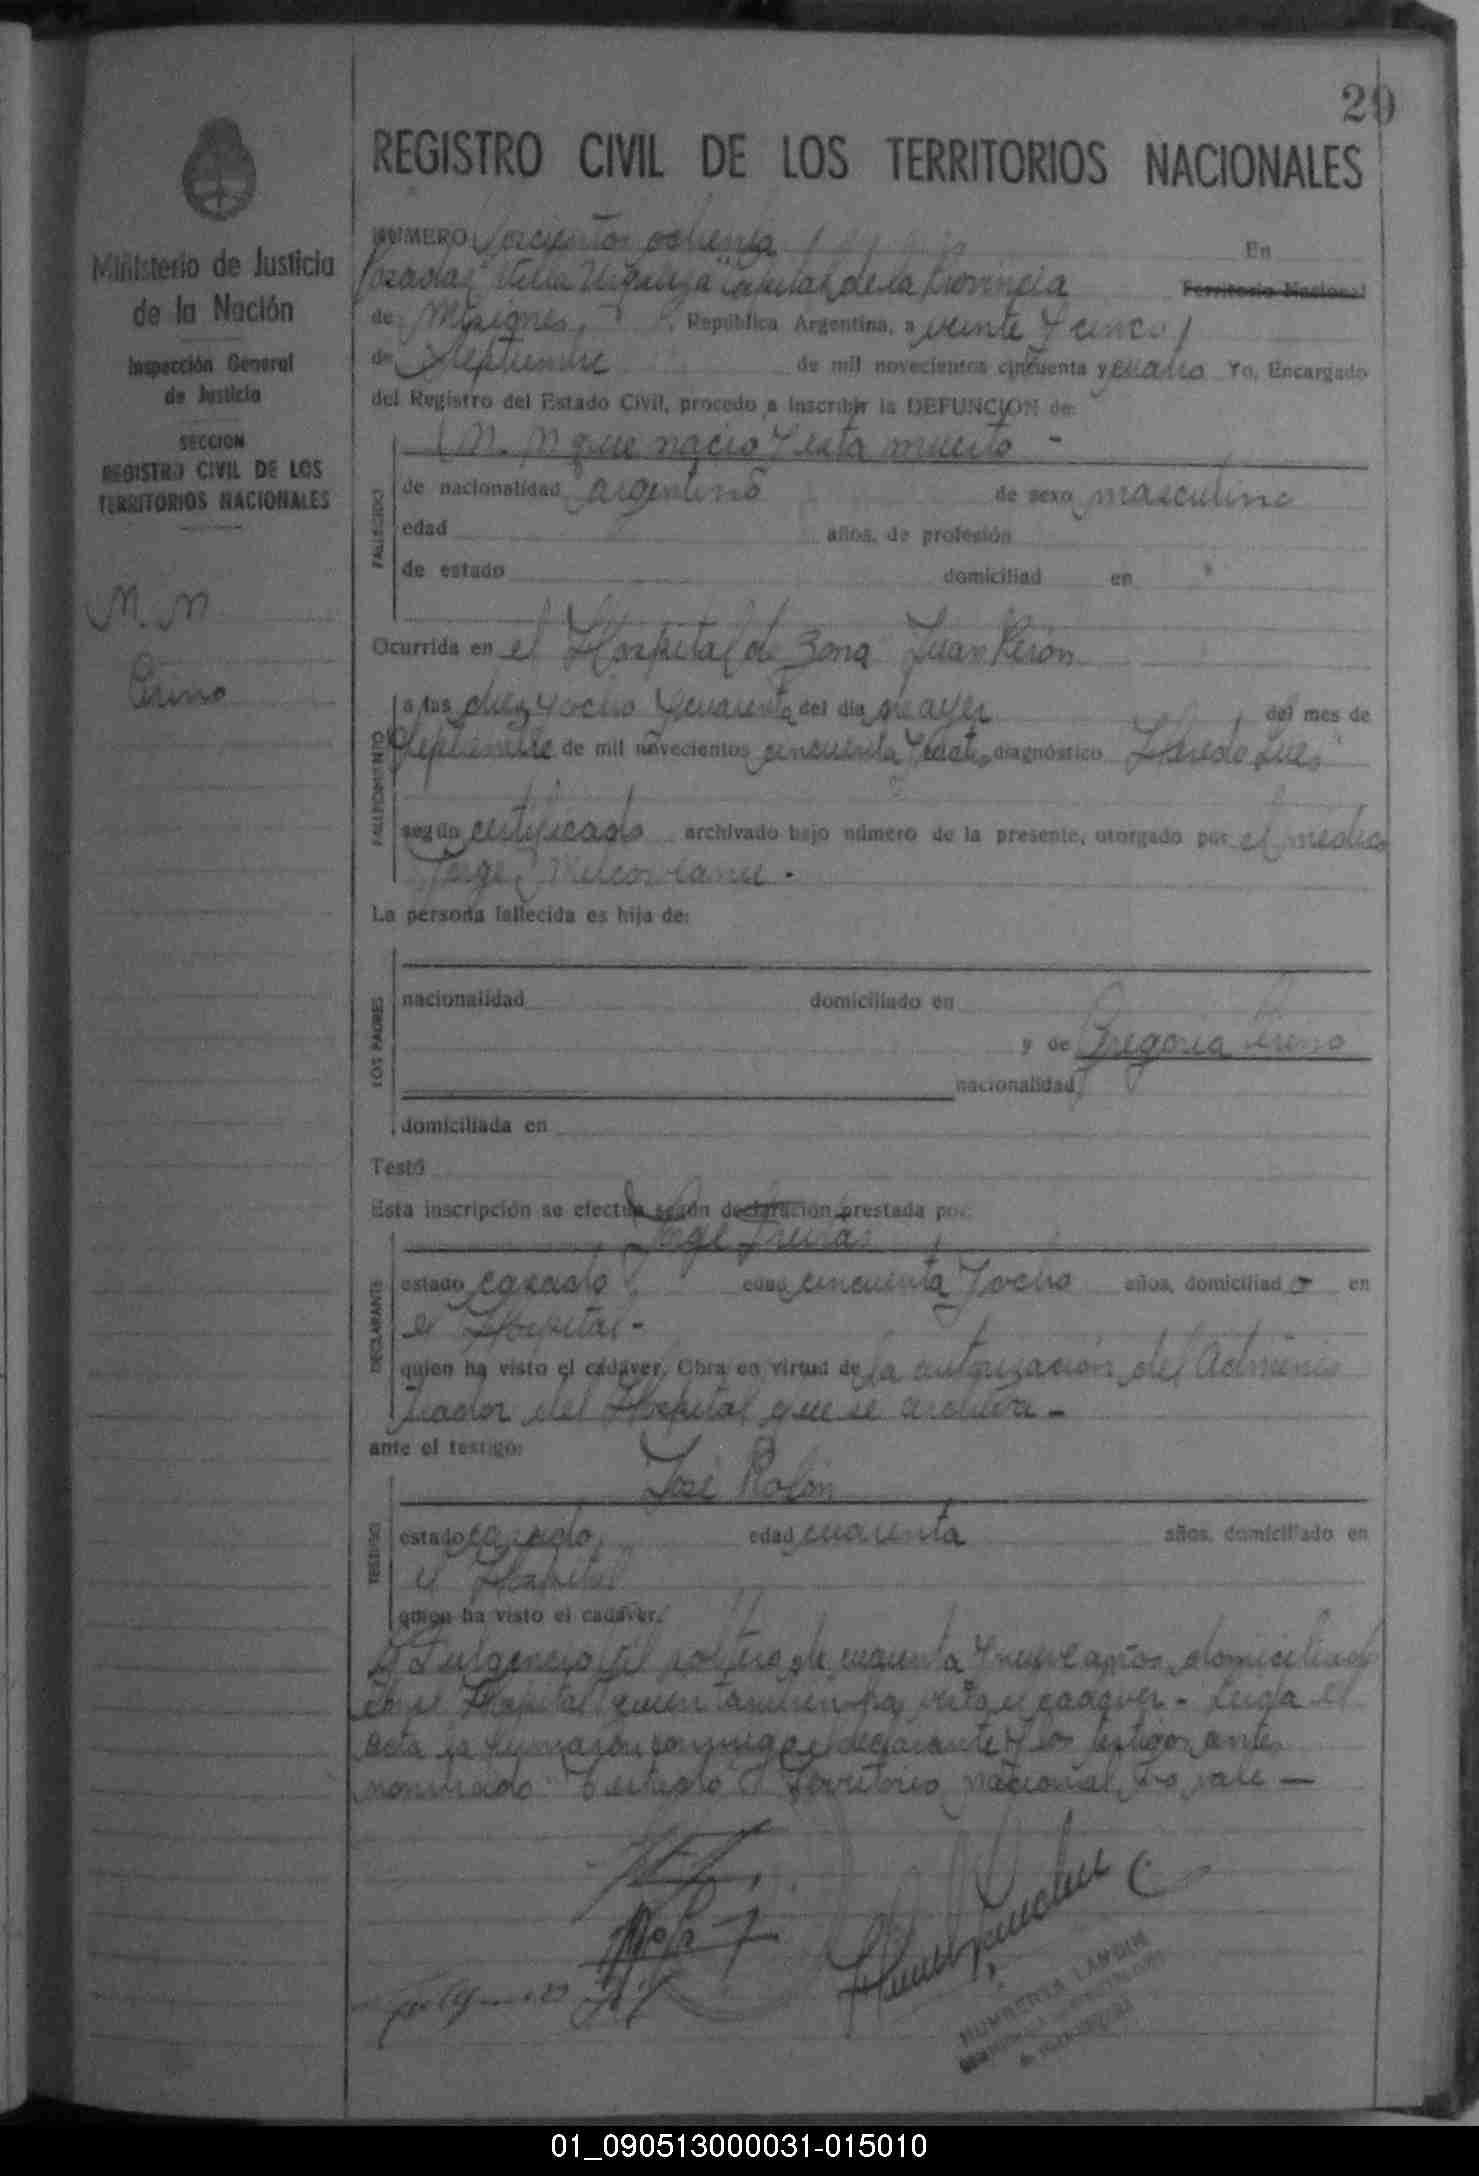 20
REGISTRO CIVIL DE LOS TERRITORIOS NACIONALES
Ministerio de Justicia
de la Nación
Inspección General
de Justicia
SECCION
REGISTRO CIVIL DE LOS
TERRITORIOS NACIONALES
N. N
NUMERO ochenta En
Posadas capital de la Provincia Territorio Nacional
de Misiones, República Argentina, a veinte y cinco
de Septiembre de mil novecientos cincuenta y cuatro Yo, Encargado
del Registro del Estado Civil, procedo a inscribir la DEFUNCION de:
FALLECIDO
N. N que nació y esta muerto -
de nacionalidad argentino de sexo masculino
edad años, de profesión
de estado domiciliad en
Ocurrida en el Hospital de Zona Juan Perón
FALLECIMIENTO
a las diez y ocho y cuarenta del día de ayer del mes de
Septiembre de mil novecientos cincuenta y cuatro diagnóstico Heredo Lues
según certificado archivado bajo número de la presente, otorgado por el médico
Jorge
La persona fallecida es hija de:
LOS PADRES
nacionalidad domiciliado en
y de Gregoria
nacionalidad
domiciliada en
Testó
Esta inscripción se efectúa según declaración prestada por:
DECLARANTE
Jorge Freitas
estado casado edad cincuenta y ocho años, domiciliad o en
el Hospital -
quien ha visto el cadáver. Obra en virtud de la autorización del Adminis
trador del Hospital que se archiva -
ante el testigo:
TESTIGO
José Rolón
estado casado edad cuarenta años, domiciliado en
el Hospital
quien ha visto el cadáver.
y Fulgencio Gil soltero de cuarenta y nueve años, domiciliado
en el Hospital quien también ha visto el cadáver - Leida el
acta la firmaron conmigo el declarante y los testigos antes
nombrado - Testado Territorio nacional No vale -
HUMBERTA
01_090513000031-015010